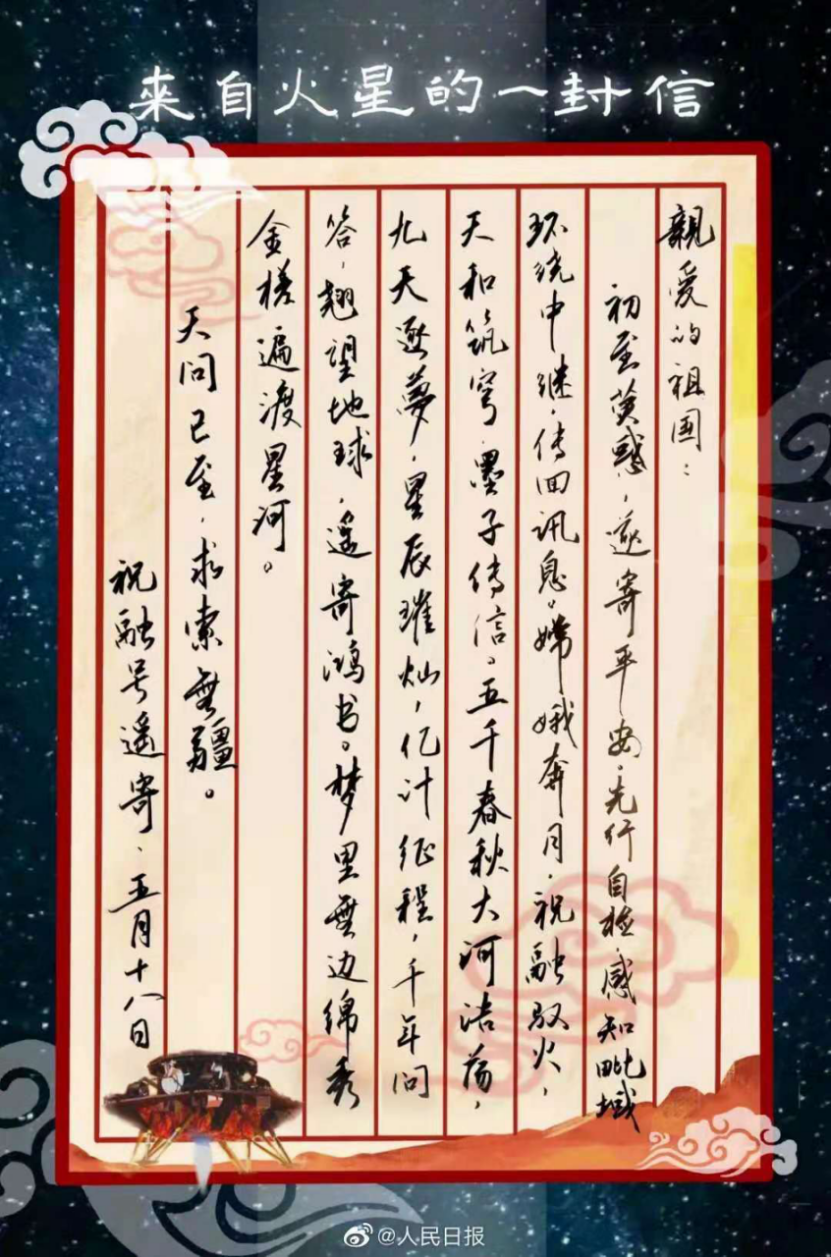 来自火星的一封信
親爱的祖国：
初至荧惑，遥寄平安。先行自检，感知毗域
环绕中继，传回讯息。嫦娥奔月，祝融驭火，
天和筑穹，墨子传信。五千春秋大河浩荡，
九天逐夢，星辰璀灿，亿计征程，千年问
答，翘望地球，遥寄鸿书。梦里無边绵秀
金槎遍渡星河。
天问已至，求索無疆。
祝融号遥寄、五月十八日
@人民日报